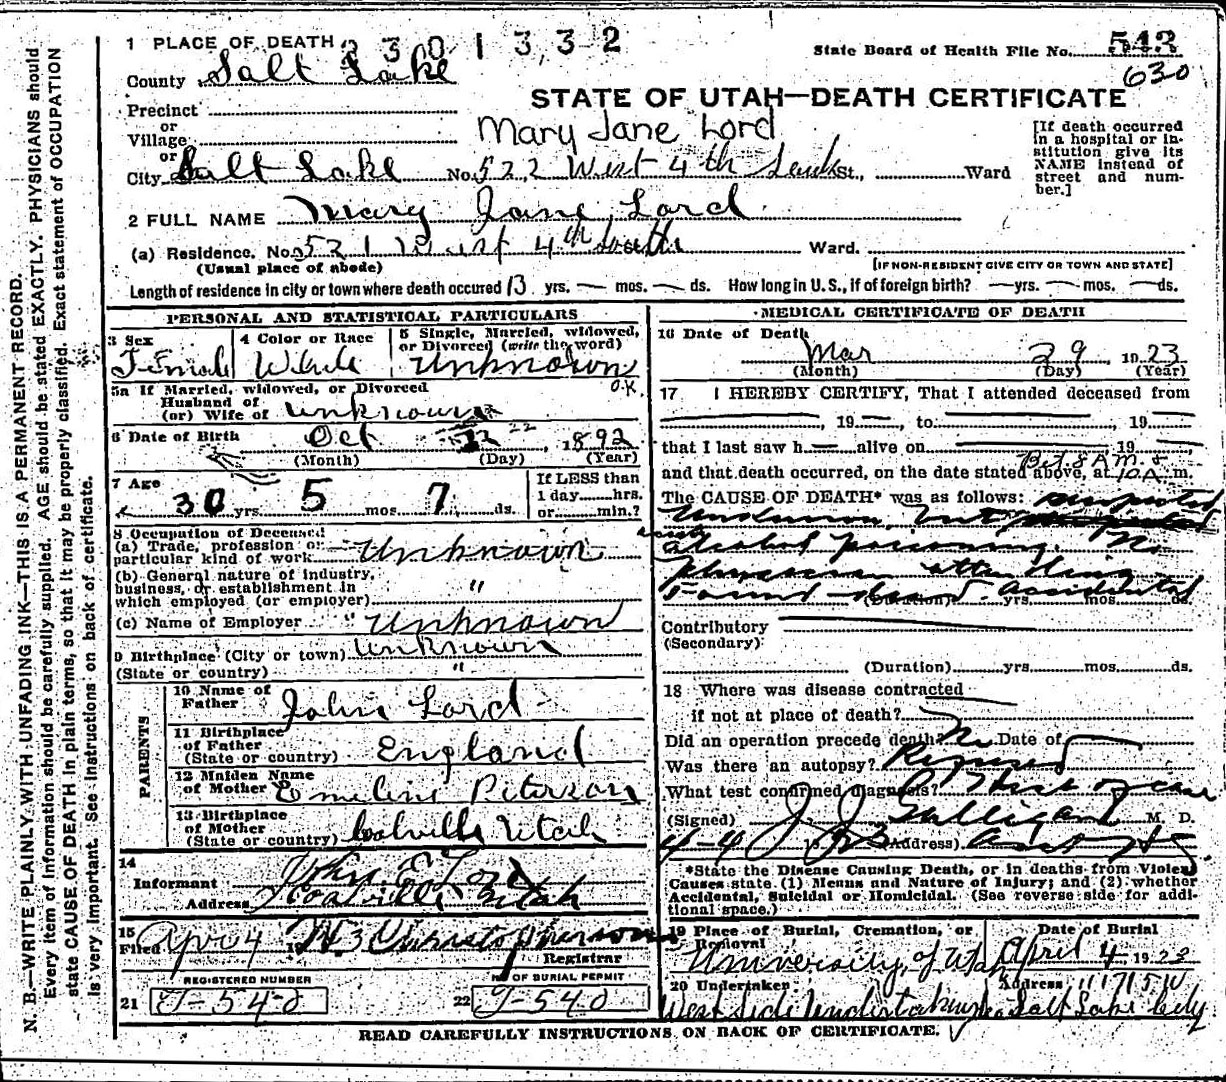 1 PLACE OF DEATH 2 3 0 1 3 3 2
State Board of Health File No. 543
630
County Salt Lake
STATE OF UTAH—DEATH CERTIFICATE
Precinct
or
Village
Mary Jane Lord
or
City Salt Lake No. 522 West 4th South St., Ward
[If death occurred in a hospital or institution give its NAME instead of street and number.]
2 FULL NAME Mary Jane Lord
(a) Residence. No. 521 West 4th South Ward.
(Usual place of abode) [IF NON-RESIDENT GIVE CITY OR TOWN AND STATE]
Length of residence in city or town where death occured 13 yrs. — mos. — ds. How long in U.S., if of foreign birth? — yrs. — mos. — ds.
PERSONAL AND STATISTICAL PARTICULARS
3 Sex Female
4 Color or Race White
5 Single, Married, widowed, or Divorced (write the word) Unknown
O.K
5a If Married, widowed, or Divorced
Husband of
(or) Wife of unknown
6 Date of Birth Oct 22 1892
(Month) (Day) (Year)
7 Age 30 yrs. 5 mos. 7 ds.
If LESS than 1 day hrs. or min.?
8 Occupation of Deceased
(a) Trade, profession or particular kind of work Unknown
(b) General nature of industry, business, or establishment in which employed (or employer) "
(c) Name of Employer " Unknown
9 Birthplace (City or town) Unknown
(State or country) "
PARENTS
10 Name of Father John Lord
11 Birthplace of Father (State or country) England
12 Maiden Name of Mother Emeline Peterson
13 Birthplace of Mother (State or country) Coalville Utah
14
Informant John E Lord
Address Coalville Utah
15
Filed Apr 4 1923 Christopherson
Registrar
REGISTERED NUMBER NO OF BURIAL PERMIT
21 J-540 22 J-540
MEDICAL CERTIFICATE OF DEATH
16 Date of Death
Mar 29, 1923
(Month) (Day) (Year)
17 I HEREBY CERTIFY, That I attended deceased from
, 19 , to , 19
that I last saw h alive on 19
and that death occurred, on the date stated above, at Bet 8 A.M. & 10 A m.
The CAUSE OF DEATH* was as follows: suspected
Unknown, but
acute alcohol poisoning. No
physician attending
Found dead. Accidental
(Duration) yrs. mos. ds.
Contributory
(Secondary)
(Duration) yrs. mos. ds.
18 Where was disease contracted
if not at place of death?
Did an operation precede death? No Date of
Was there an autopsy? Refused
What test confirmed diagnosis? Hist of case
(Signed) J. J. Galligan M. D.
4-4 1923 (Address)
*State the Disease Causing Death, or in deaths from Violent Causes state (1) Means and Nature of Injury; and (2) whether Accidental, Suicidal or Homicidal. (See reverse side for additional space.)
19 Place of Burial, Cremation, or Removal University of Utah
Date of Burial April 4 1923
20 Undertaker West Side Undertaking Co
Address Salt Lake City
READ CAREFULLY INSTRUCTIONS ON BACK OF CERTIFICATE.
N. B.—WRITE PLAINLY WITH UNFADING INK—THIS IS A PERMANENT RECORD.
Every item of information should be carefully supplied. AGE should be stated EXACTLY. PHYSICIANS should
state CAUSE OF DEATH in plain terms, so that it may be properly classified. Exact statement of OCCUPATION
is very important. See instructions on back of certificate.